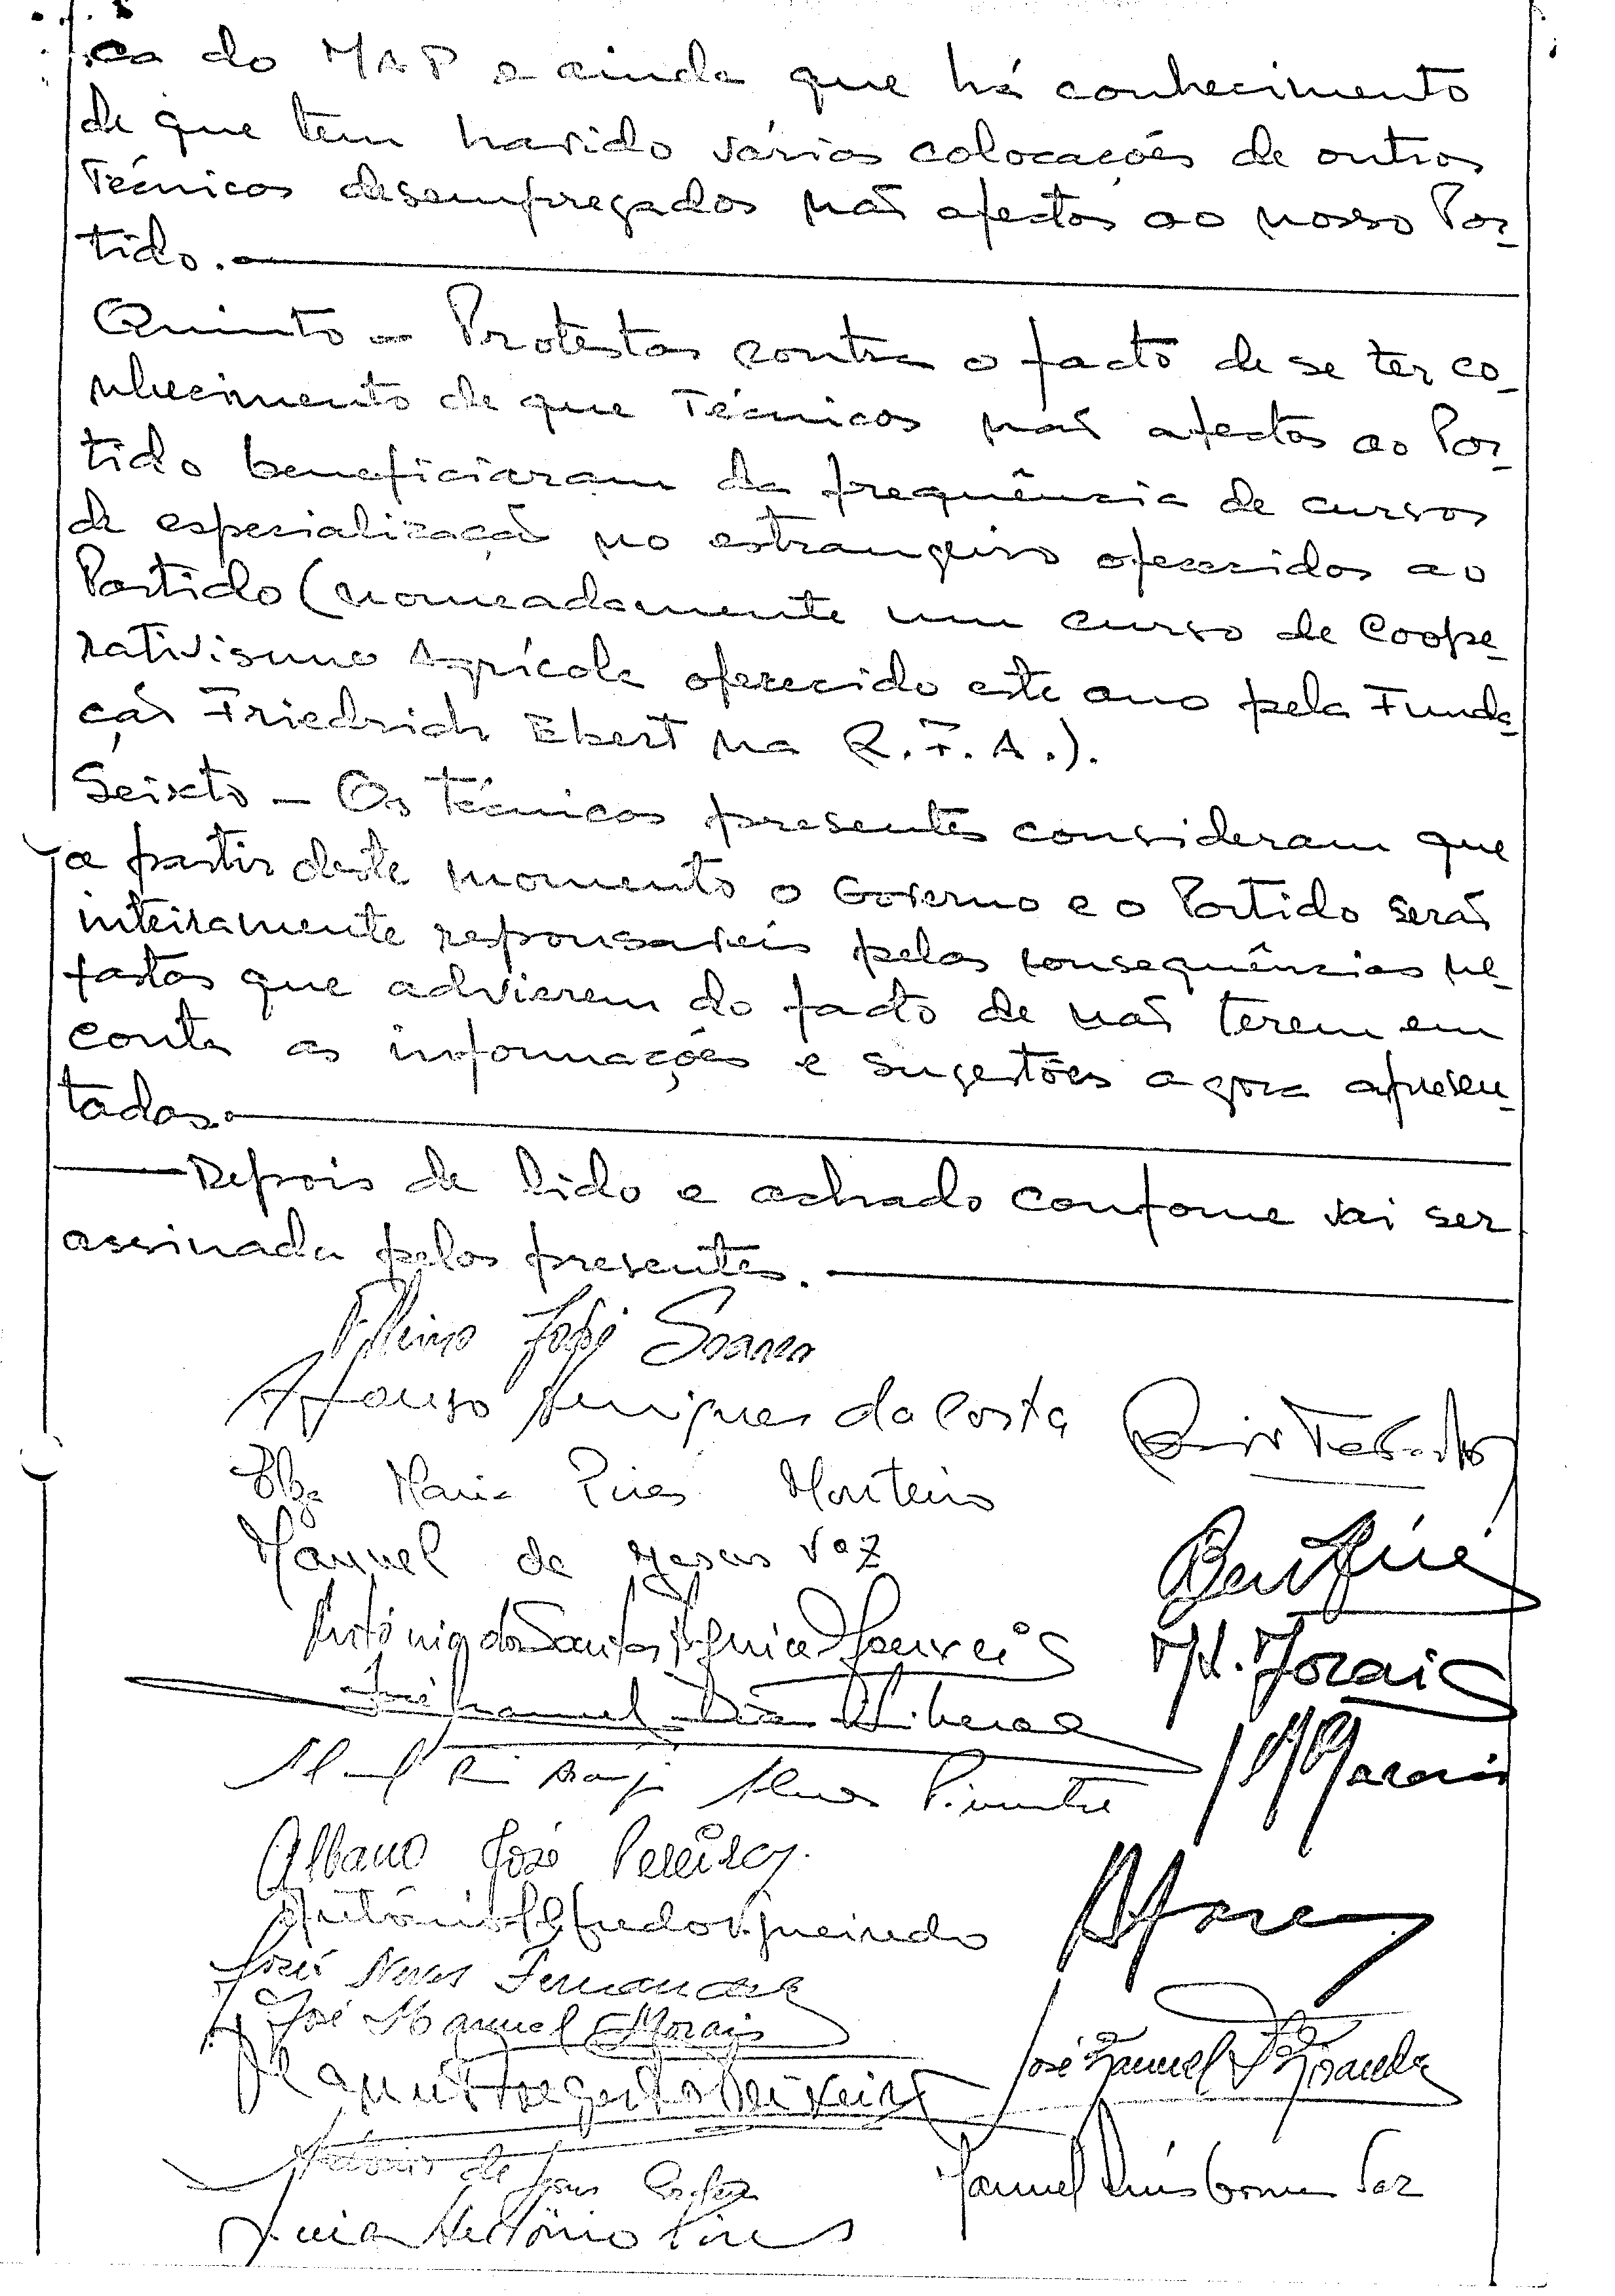 ca do MAP e ainda que há conhecimento
de que tem havido várias colocações de outros
Técnicos desempregados não afectos ao nosso Par-
tido.
Quinto - Protestar contra o facto de se ter co-
nhecimento de que Técnicos não afectos ao Par-
tido beneficiaram da frequência de cursos
de especialização no estrangeiro oferecidos ao
Partido (nomeadamente um curso de Coope-
rativismo Agrícola oferecido este ano pela Funda-
ção Friedrich Ebert na R.F.A.).
Seixto - Os técnicos presentes consideram que
a partir deste momento o Governo e o Partido serão
inteiramente responsáveis pelas consequências ne-
fastas que advierem do facto de não terem em
conta as informações e sugestões agora apresen-
tadas.
Depois de lido e achado conforme vai ser
assinada pelos presentes.
José Soares
Afonso Henriques da Costa
Maria Pires Monteiro
Manuel de Jesus Vaz
António dos Santos
M. Morais
José Manuel
Pimentel
Albano José Pereira
António Alfredo Figueiredo
José Neves Fernandes
José Manuel Morais
José Manuel Miranda
Teixeira
António de Jesus
Manuel Luís Gomes Vaz
António Pires